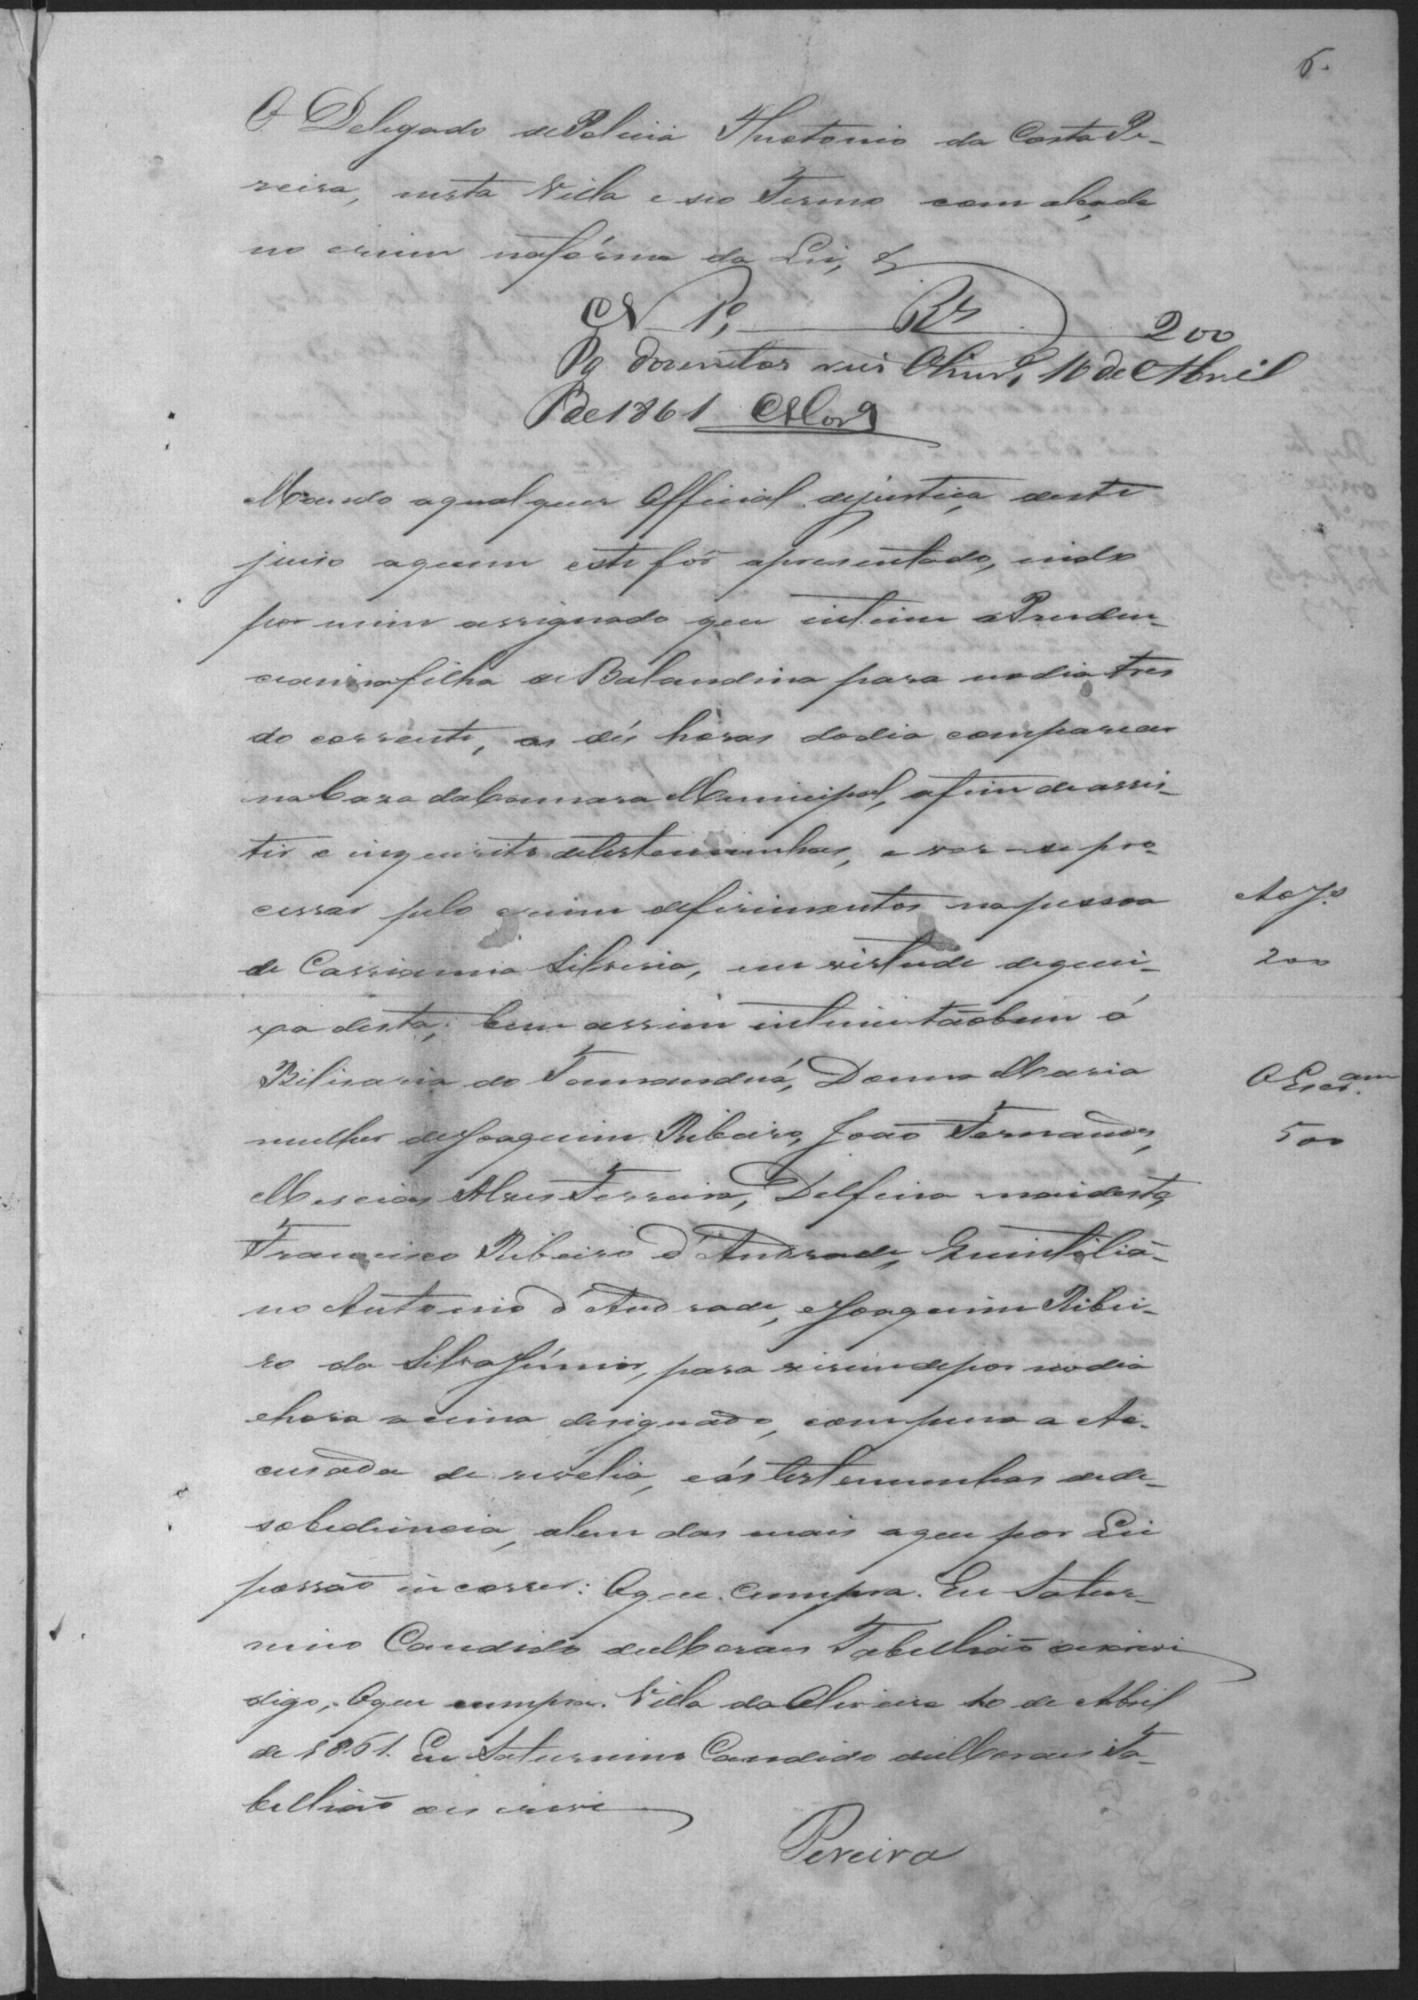 6.
O Delegado de Policia Theotonio da Costa Pe-
reira, nesta Villa e seo Termo com alçada
no crime na fórma da Lei, &
N 1º, Rs 200
Pg dozentos reis Olivrª, 10 de Abril
de 1861
Mando a qualquer Official de justiça deste
juiso a quem este fôr apresentado, indo
por mim assignado que intime a Pruden-
cianna filha de Balandina para no dia tres
do corrente, as dés horas do dia comparecer
na Caza da Camara Municipal, afim de assis-
tir o inquirito de testemunhas, e ver-se pro-
cessar pelo crime de firimentos na pessoa
de Cassianna Silveria, em virtude de quei-
xa desta; bem assim intime tãobem á
Bilisaria do Tamanduá, Donna Maria
mulher de Joaquim Ribeiro, João Fernandes,
Messias Alves Ferreira, Delfina mai desta,
Francisco Ribeiro d'Andrade, Quintilia-
no Antonio d'Andrade, e Joaquim Ribei-
ro da Silva Júnior, para virem depor no dia
e hora acima designado, com pena a Ac-
cusada de revelia, e ás testemunhas de de-
sobediencia, alem das mais a que por Lei
possão incorrer: O que cumpra. Eu Satur-
nino Candido de Moraes Tabellião escrevi
digo, O que cumpra. Villa da Oliveira 10 de Abril
de 1861. Eu Saturnino Candido de Moraes Ta-
bellião o escrevi
Pereira
Ao Jº
200
O Escram.
500